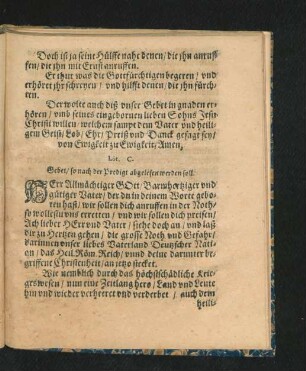 Doch ist ja seine Hülffe nahe denen / die jhn anruf-
fen / die jhn mit Ernst anruffen.
Er thut was die Gottfürchtigen begeren / vnd
erhöret jhr schreyen / vnd hilfft denen / die jhn fürch-
ten.
Der wolte auch diß vnser Gebet in gnaden er-
hören / vnd seines eingebornen lieben Sohns Jesu
Christi willen / welchem sampt dem Vater vnd heili-
gem Geist / Lob / Ehr / Preiß vnd Danck gesagt sey /
von Ewigkeit zu Ewigkeit / Amen.
Lit. C.
Gebet / so nach der Predigt abgelesen werden soll.
HErr Allmächtiger GOtt / Barmhertziger vnd
gütiger Vater / der du in deinem Worte gebo-
ten hast / wir sollen dich anruffen in der Noth /
so wollestu vns erretten / vnd wir sollen dich preisen /
Ach lieber HErr vnd Vater / siehe doch an / vnd laß
dir zu Hertzen gehen / die grosse Noth vnd Gefahr /
darinnen vnser liebes Vaterland Deutzscher Nati-
on / das Heil. Röm. Reich / vnnd deine darunter be-
griffene Christenheit / an jetzo stecket.
Wie nemblich durch das höchstschädliche Krie-
geswesen / nun eine Zeitlang hero / Land vnd Leute
hin vnd wieder verheeret vnd verderbet / auch dem
heili-